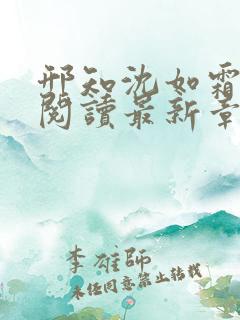 邢知沈如霜
閱讀最新章
李雄師
未任同意禁止转載